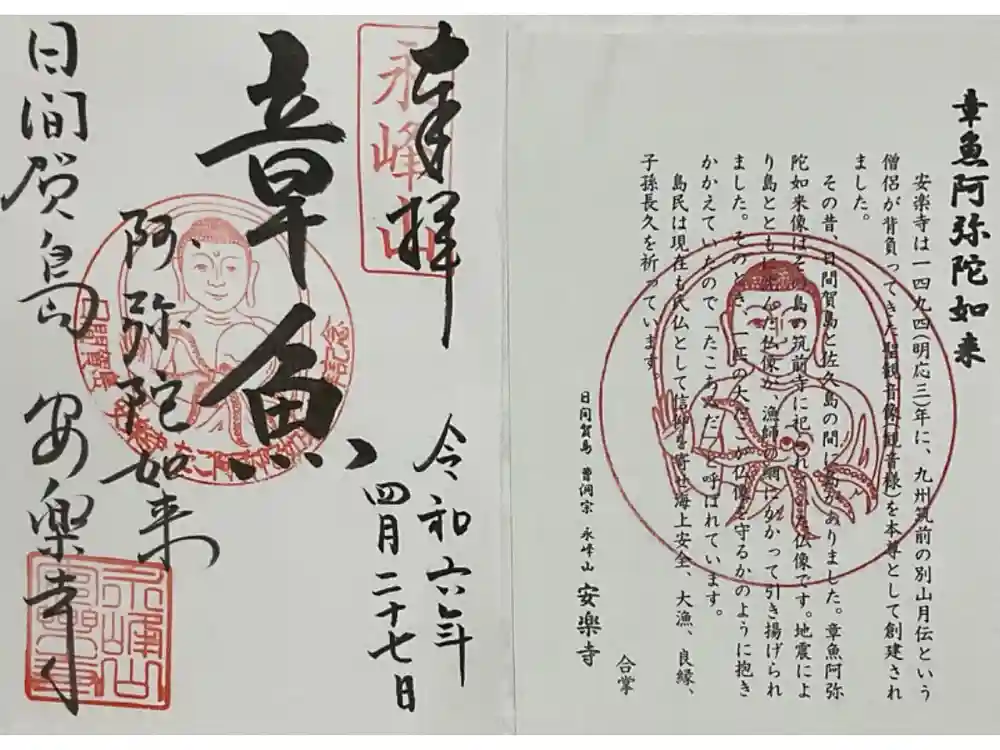 章魚阿弥陀如来
安楽寺は一四九四(明応三)年に、九州筑前の別山月伝という
僧侶が背負ってきた聖観音像(観音様)を本尊として創建され
ました。
その昔、日間賀島と佐久島の間に島がありました。章魚阿弥
陀如来像はその島の筑前寺に祀られていた仏像です。地震によ
り島とともに沈んだ仏像が、漁師の網にかかって引き揚げられ
ました。そのとき、一匹の大だこが仏像を守るかのように抱き
かかえていたので「たこあみだ」と呼ばれています。
島民は現在も氏仏として信仰を寄せ海上安全、大漁、良縁、
子孫長久を祈っています。
合掌
日间賀島 曹洞宗 永峰山 安楽寺
奉拝
永峰山
令和六年
四月二十七日
章魚
阿弥陀如来
日間賀島 安楽寺